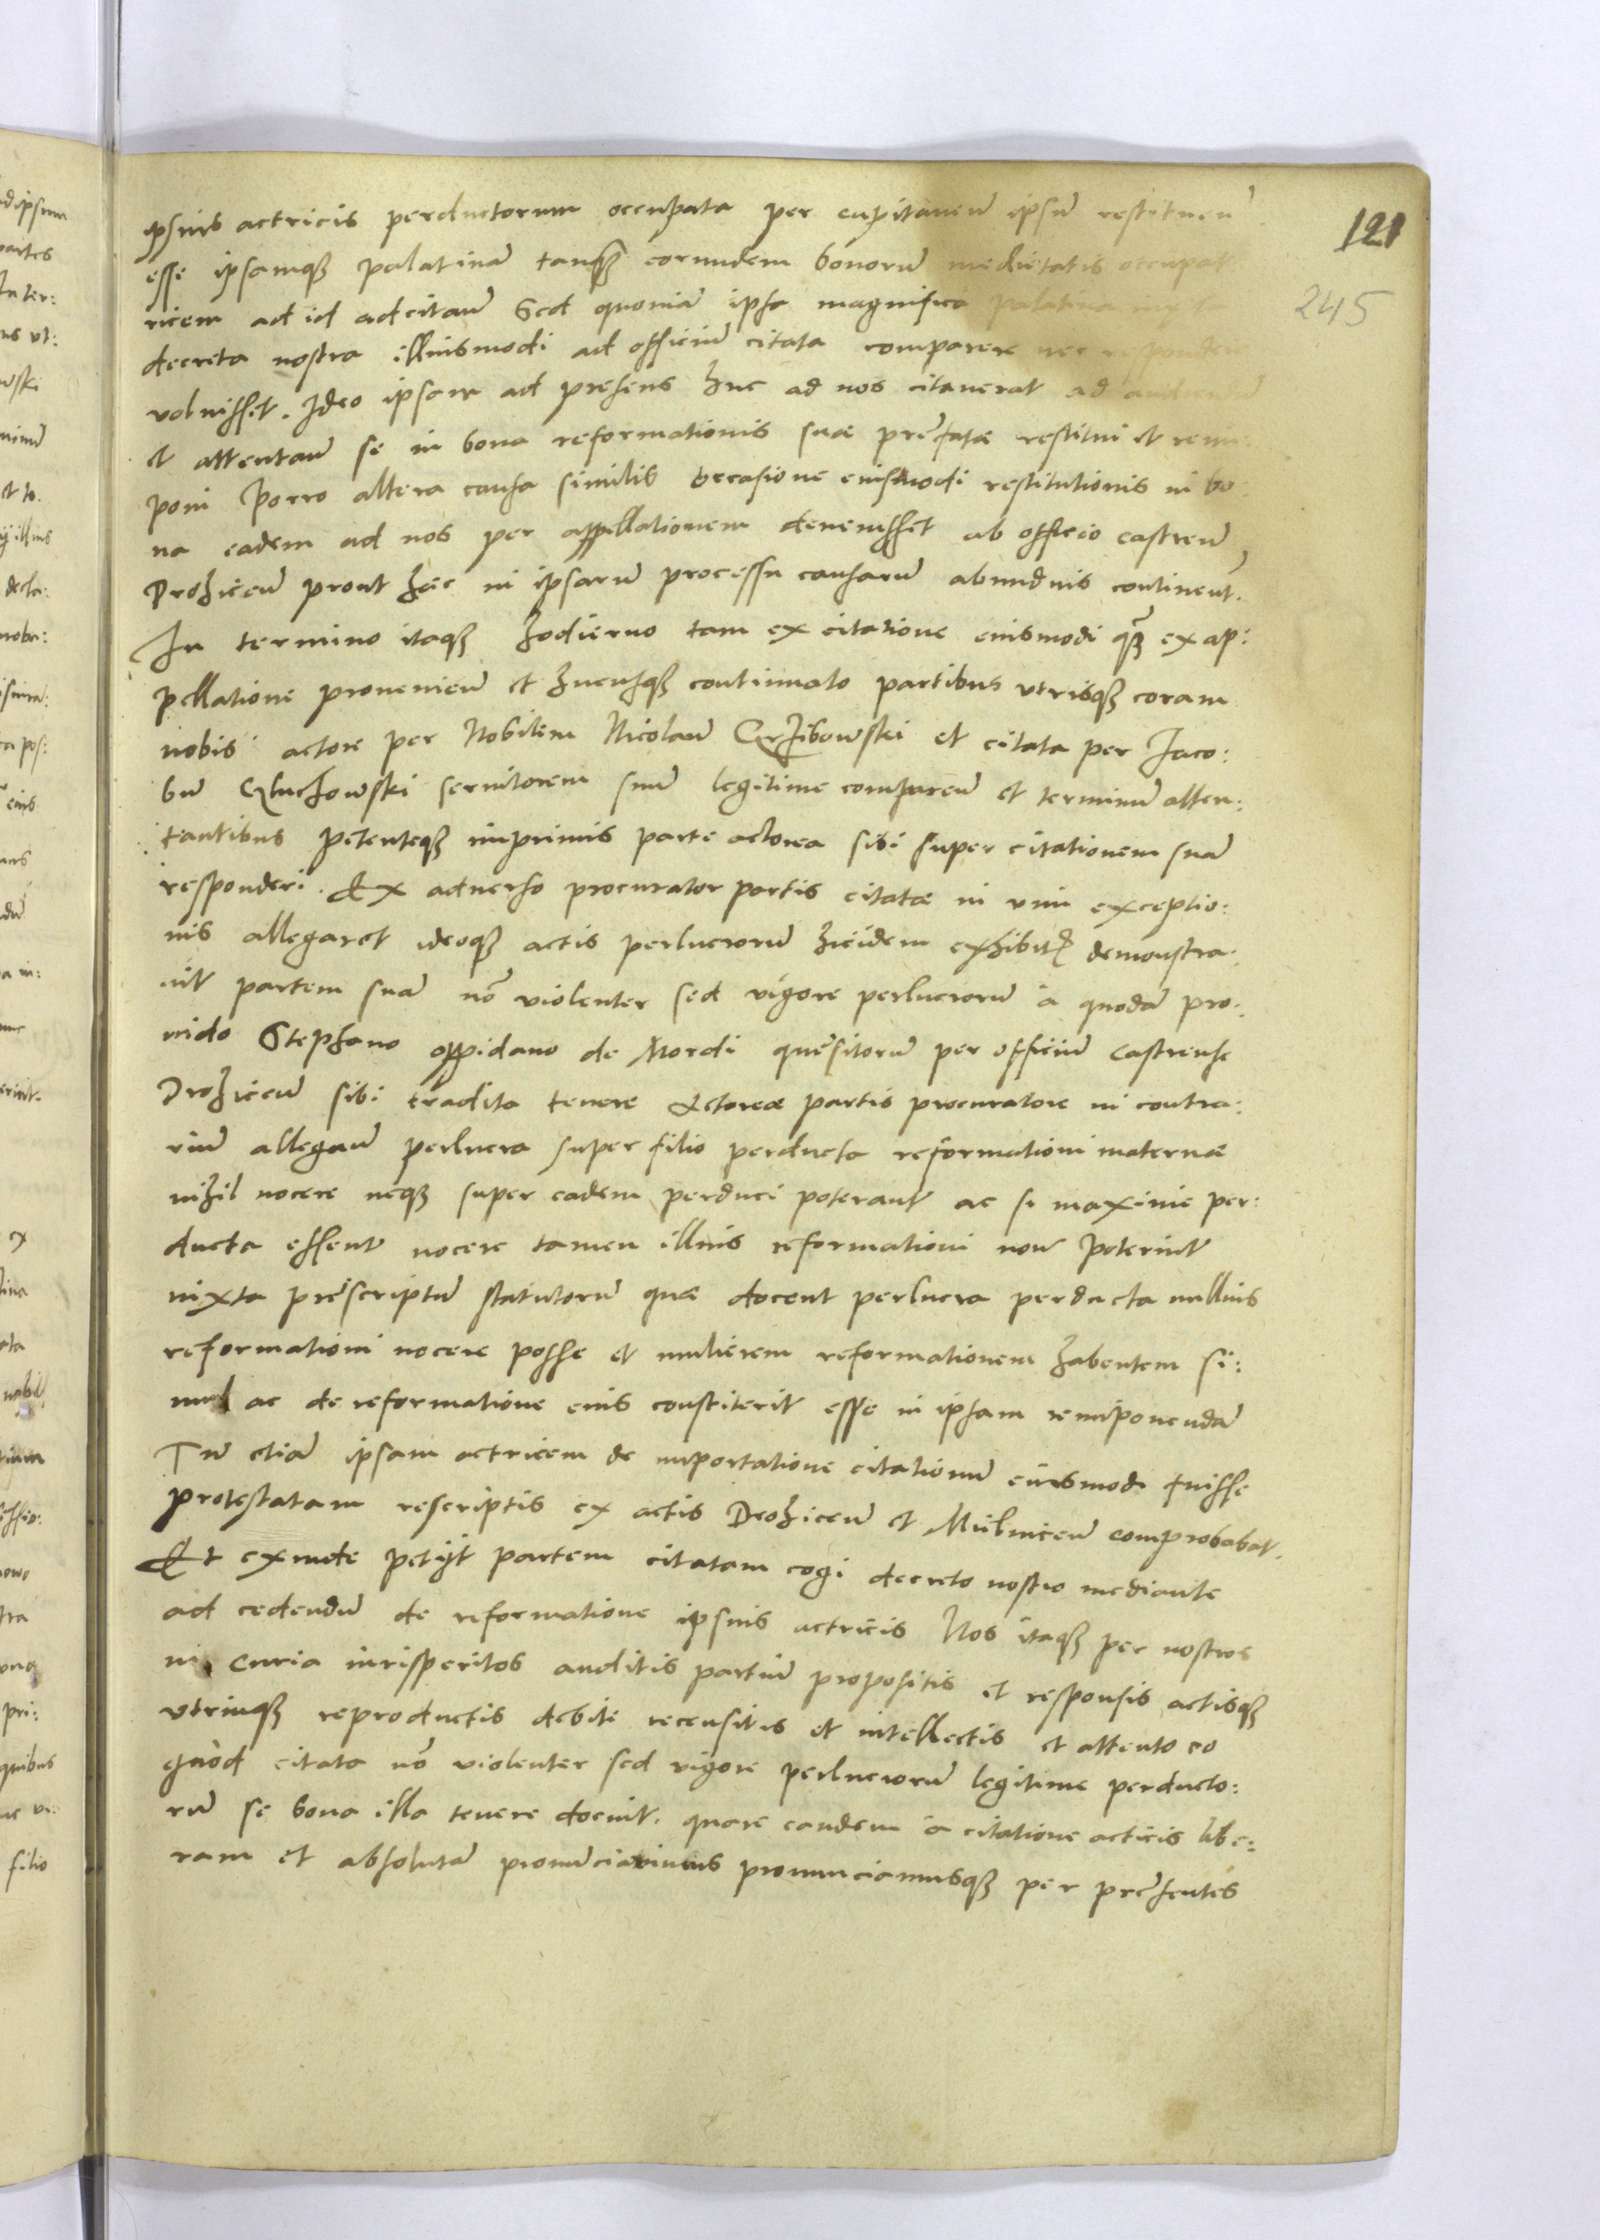 121
245
ipsius actricis perductorum occupata per capitaneū ipsū restituēn
esse ipsamqȝ palatinā tanqȝ eorundem bonorū medietatis occupat
ricem ad id adcitaūn Sed quoniā ipsa magnifica palatina
decreta nostra illiusmodi ad officium citata comparere nec
voluisset. Ideo ipsam ad presens huc ad nos citaverat ad audiendū
et attentaūn se in bona reformationis suæ prefatæ restitui et reim-
poni Porro altera causa similis occasione eiusmodi restitutionis in bo-
na eadem ad nos per appellationem devenisset ab officio castreū
Drohiceū prout hæc in ipsarū processu causarū abundius continent̃.
In termino itaqȝ hodierno tam ex citatione eiusmodi qȝ ex ap:
pellatione provenieū et hucusqȝ continuato partibus utrisqȝ coram
nobis actore per Nobilem Nicolaū Czrzibowski et citata per Iaco:
bū Czluchowski servitorem suū legitime compareū et terminū atten:
tantibus petenteqȝ inprimis parte actorea sibi super citationem suā
responderi. Ex adverso procurator partis citatæ in vim exceptio:
nis allegaret ideoqȝ actis perlucrorū hicidem exhibit̃ demonstra.
vit partem suā nō violenter sed vigore perlucrorū à quodā pro-
vido Stephano oppidano de Mordi quesitorū per officiū castrense
Drohiceū sibi tradita tenere Actoreæ partis procuratore in contra:
riū allegaūn perlucra super filio perducta reformationi maternæ
nihil nocere neqȝ super eadem perduci poterant ac si maxime per:
ducta essent nocere tamen illius reformationi non poterint
iuxta prescriptū statutorū quæ docent perlucra perducta nullius
reformationi nocere posse et mulierem reformationem habentem si:
mul ac de reformatione eius constiterit esse in ipsam reimponendā
Tū etiā ipsam actricem de inportatione citationū eiusmodi fuisse
protestatam rescriptis ex actis Drohiceū et Milniceū comprobabat.
Et exinde petijt partem citatam cogi decreto nostro mediante
ad cedendū de reformatione ipsius actricis Nos itaqȝ per nostros
in curia iurisperitos auditis partiū propositis et responsis actisqȝ
utrinqȝ reproductis debite recensitis et intellectis et attento eo
quòd citata nō violenter sed vigore perlucrorū legitime perducto:
rū se bona illa tenere docuit. quare eandem à citatione actricis libe:
ram et absolutā pronunciavimus pronunciamusqȝ per presentes